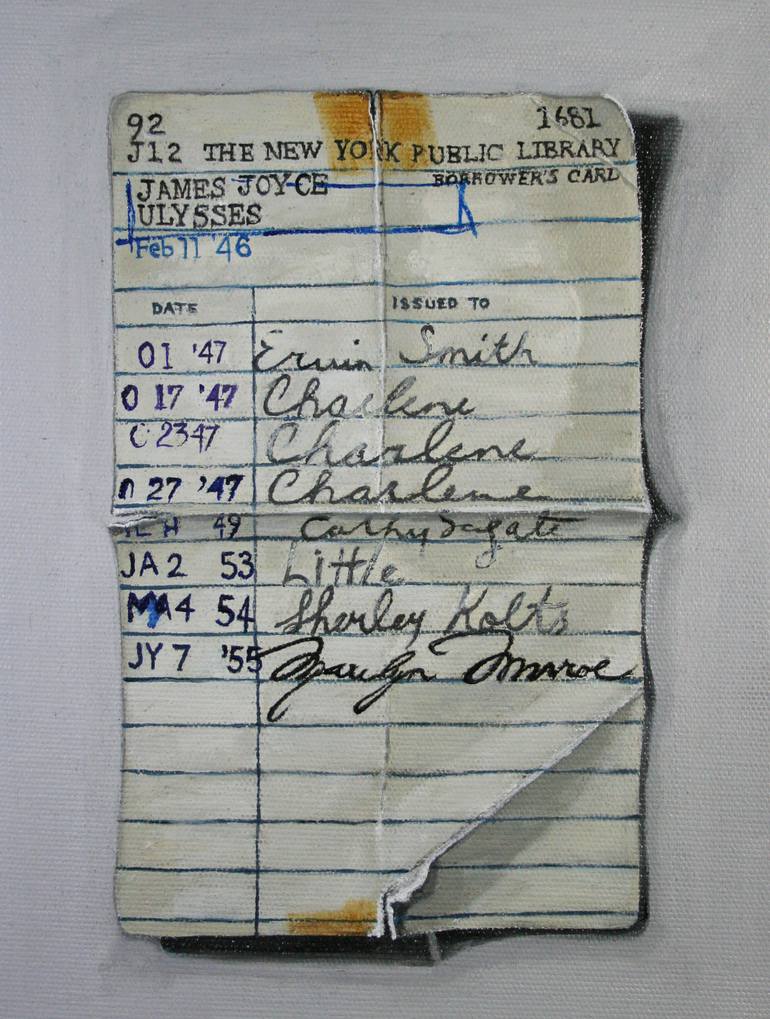 92 1681
J12 THE NEW YORK PUBLIC LIBRARY
BORROWER'S CARD
JAMES JOYCE
ULYSSES
Feb 11 '46
DATE ISSUED TO
O1 '47 Ervin Smith
O 17 '47 Charlene
C 23 47 Charlene
27 '47 Charlene
49 Cathy
JA 2 53 Little
MA 4 54 Sherley Kolts
JY 7 '55 Marilyn Monroe